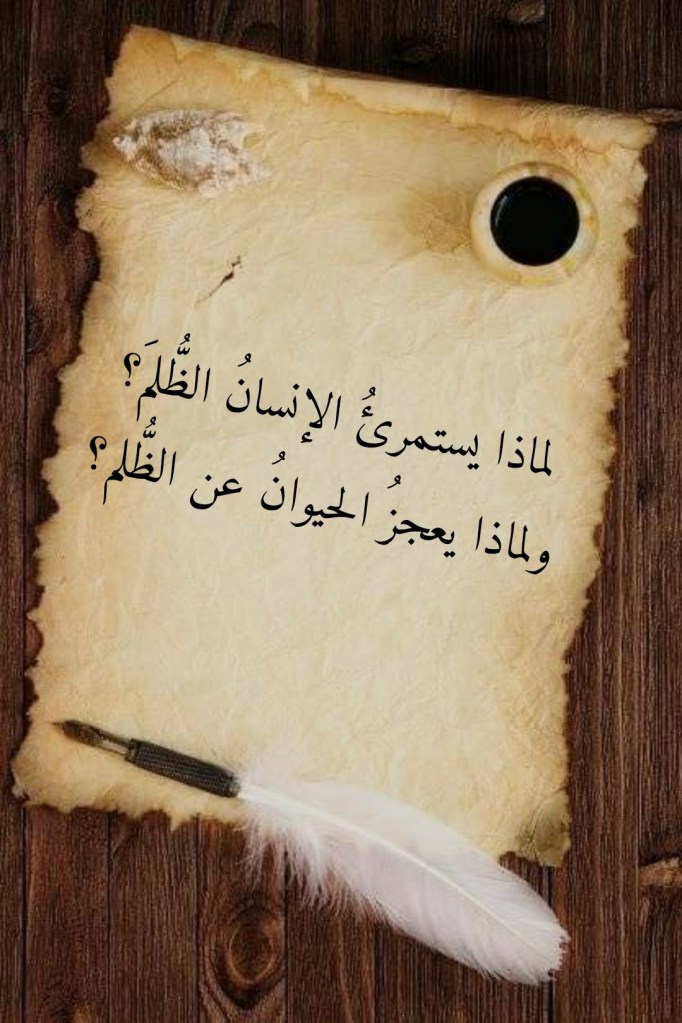 لماذا يستمرئُ الإنسانُ الظُّلمَ؟
ولماذا يعجزُ الحيوانُ عن الظُّلم؟